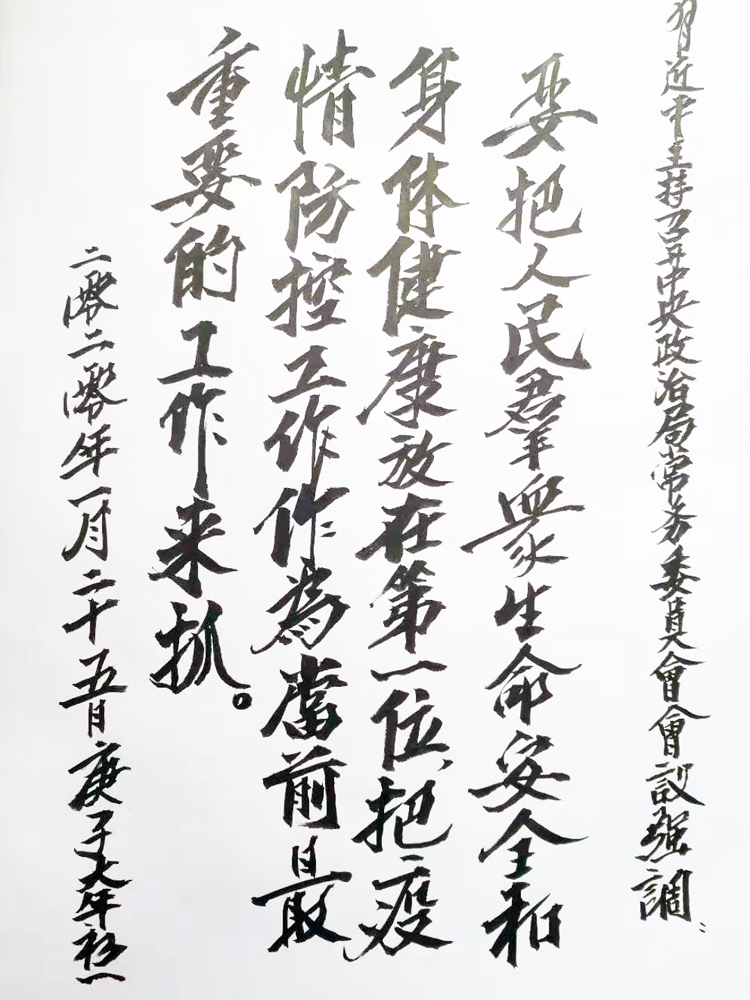 习近平主持召开中央政治局常务委員會會议强調：
要把人民羣衆生命安全和
身体健康放在第一位，把疫
情防控工作作為當前最
重要的工作来抓。
二零二零年一月二十五日庚子大年初一